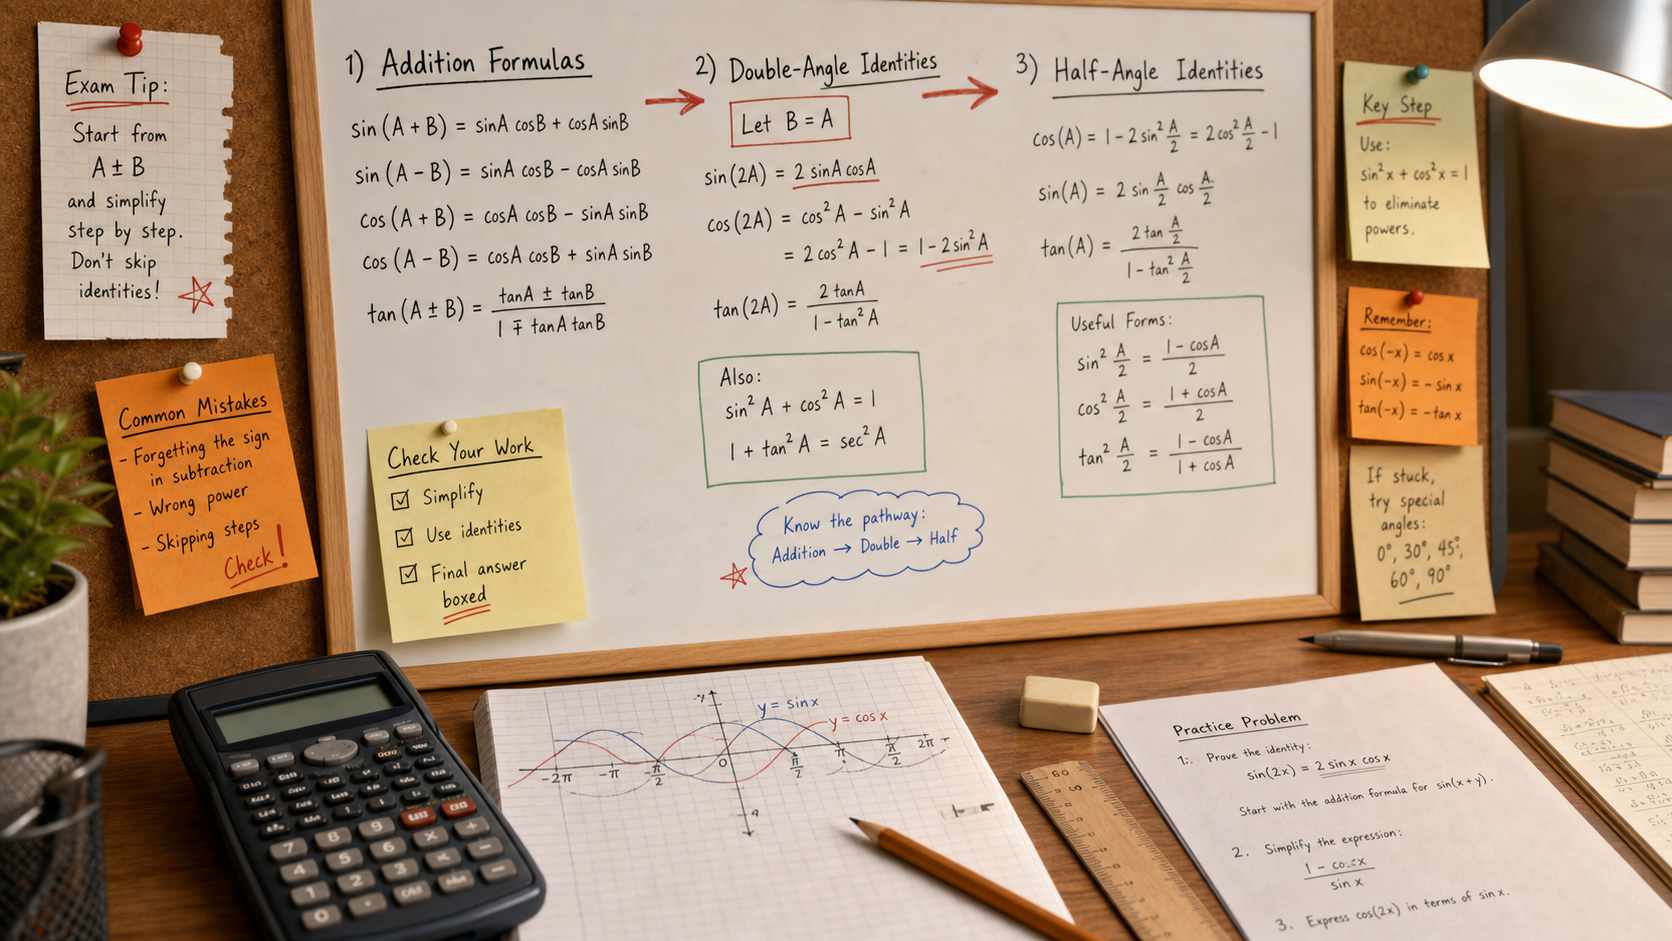 Exam Tip:
Start from
A ± B
and simplify
step by step.
Don't skip
identities!
Common Mistakes
- Forgetting the sign
in subtraction
- Wrong power
- Skipping steps
Check!
1) Addition Formulas
sin (A + B) = sinA cosB + cosA sinB
sin (A − B) = sinA cosB − cosA sinB
cos (A + B) = cosA cosB − sinA sinB
cos (A − B) = cosA cosB + sinA sinB
tan (A ± B) = (tanA ± tanB) / (1 ∓ tanA tanB)
Check Your Work
☑ Simplify
☑ Use identities
☑ Final answer
boxed
2) Double-Angle Identities
Let B = A
sin(2A) = 2 sinA cosA
cos(2A) = cos² A − sin² A
= 2 cos² A − 1 = 1 − 2 sin² A
tan(2A) = 2 tanA / (1 − tan² A)
Also:
sin² A + cos² A = 1
1 + tan² A = sec² A
Know the pathway:
Addition → Double → Half
3) Half-Angle Identities
cos(A) = 1 − 2 sin² A/2 = 2 cos² A/2 − 1
sin(A) = 2 sin A/2 cos A/2
tan(A) = 2 tan A/2 / (1 − tan² A/2)
Useful Forms:
sin² A/2 = (1 − cosA) / 2
cos² A/2 = (1 + cosA) / 2
tan² A/2 = (1 − cosA) / (1 + cosA)
Key Step
Use:
sin² x + cos² x = 1
to eliminate
powers.
Remember:
cos(-x) = cos x
sin(-x) = − sin x
tan(-x) = −tan x
If stuck,
try special
angles:
0°, 30°, 45°,
60°, 90°
y = sin x
y = cos x
−2π −π −π/2 0 π/2 π π/2 2π
7 8 9
4 5 6
1 2 3
0
Practice Problem
1. Prove the identity:
sin(2x) = 2 sin x cos x
Start with the addition formula for sin(x + y).
2. Simplify the expression:
1 − cosx
sin x
3. Express cos(2x) in terms of sin x.